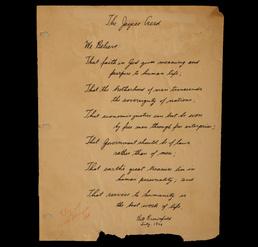 The Jaycee Creed
We Believe
That faith in God gives meaning and
purpose to human life;
That the brotherhood of man transcends
the sovereignty of nations;
That economic justice can best be won
by free men through free enterprise;
That Government should be of laws
rather than of men;
That earth's great treasure lies in
human personality; and
That service to humanity is
the best work of life
Bill Brownfield
July